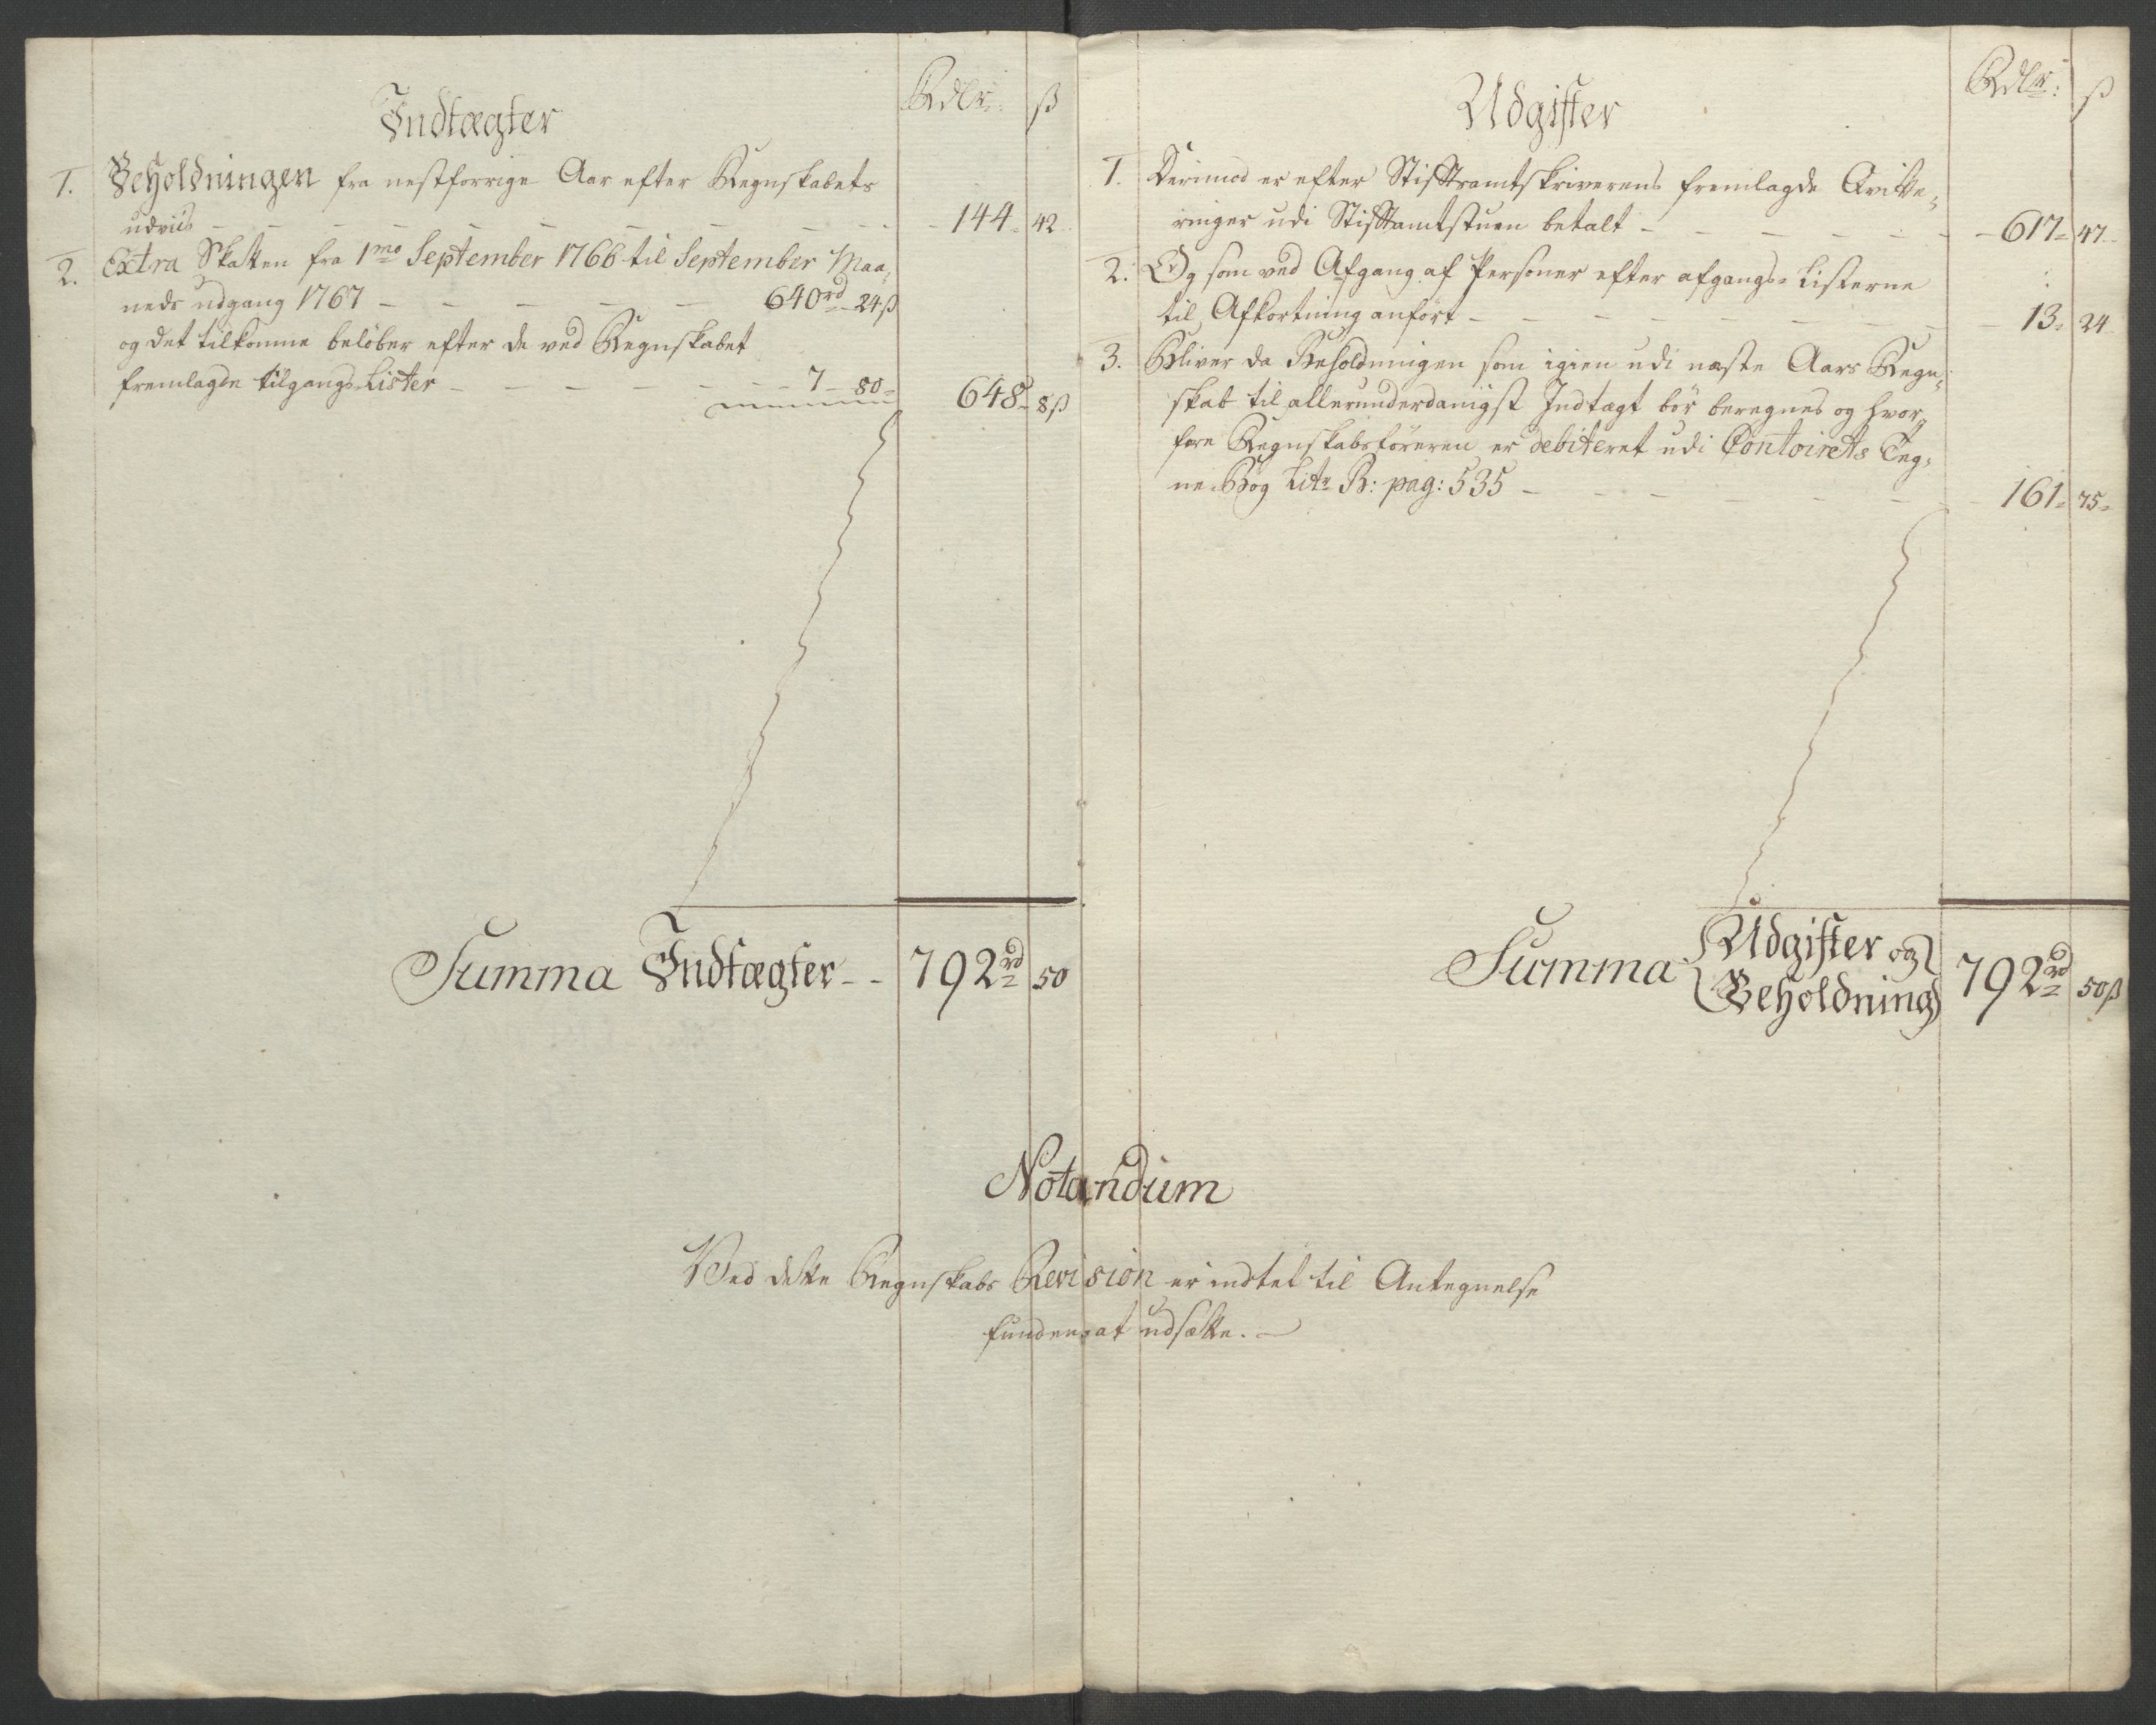 Indtægter
Rdlr: ß
1. Beholdningen fra nestforrige Aar efter Regnskabets
udviis - - - - - - - - 144 - 42
2. Extra Skatten fra 1mo September 1766 til September Maa,
neds udgang 1767 - - - - - 640rd - 24ß
og det tilkomne beløber efter de ved Regnskabet
fremlagde tilgangs Lister - - - - - - 7 - 80 -
648 - 8ß
Summa Indtægter - - 792rd 50
Udgifter
Rdlr: ß
1. Derimod er efter Stiftamtskriverens fremlagde Qvitte,
ringer udi Stiftamtstuen betalt - - - - - - 617 - 47
2. Og som ved Afgang af Personer efter afgangs- Listerne
til Afkortning anført - - - - - - - - 13 - 24
3. Bliver da Beholdningen som igien udi næste Aars Regn,
skab til allerunderdanigst Indtægt bør beregnes og hvor,
fore Regnskabsføreren er debiteret udi Contoirets Teg,
ne-Bog Litr B: pag: 535 - - - - - - 161 - 75 -
Summa Udgifter og
Beholdning 792rd 50ß
Notandum
Ved dette Regnskabs Revision er indtet til Antegnelse
funden at udsætte. -